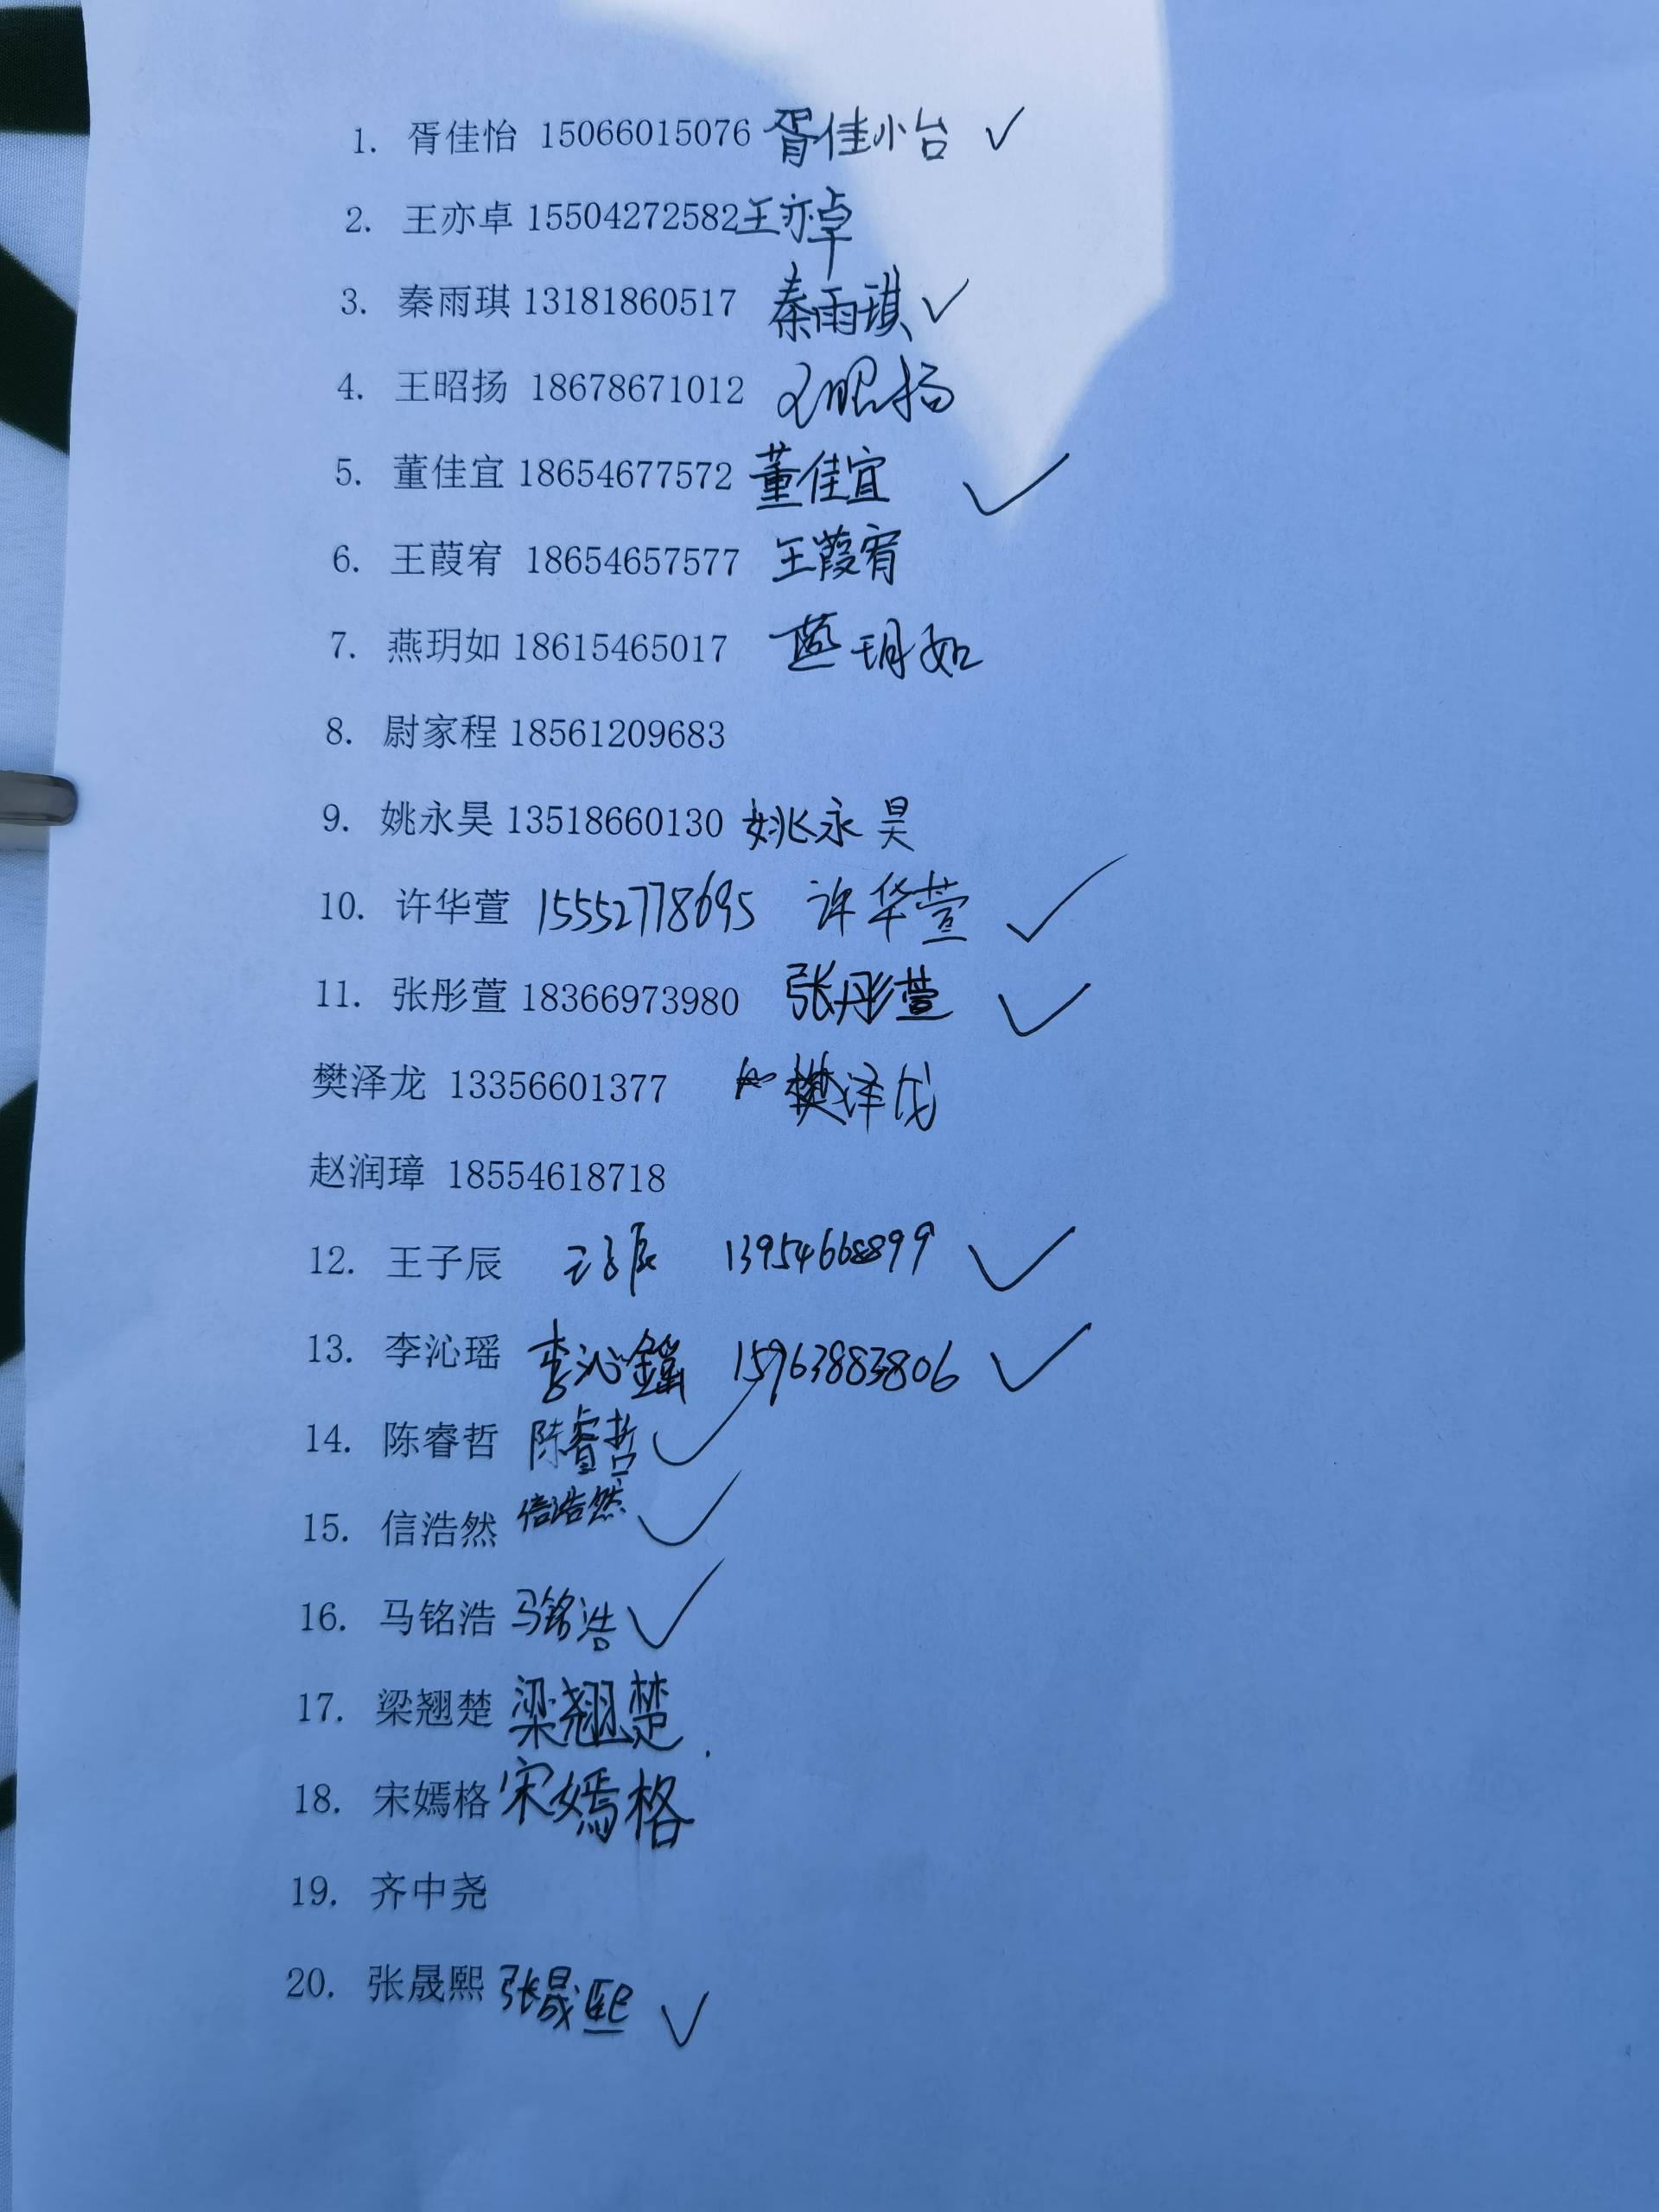 1. 胥佳怡 15066015076 胥佳怡 ✓
2. 王亦卓 15504272582 王亦卓
3. 秦雨琪 13181860517 秦雨琪 ✓
4. 王昭扬 18678671012 王昭扬
5. 董佳宜 18654677572 董佳宜 ✓
6. 王葭宥 18654657577 王葭宥
7. 燕玥如 18615465017 燕玥如
8. 尉家程 18561209683
9. 姚永昊 13518660130 姚永昊
10. 许华萱 15552778695 许华萱 ✓
11. 张彤萱 18366973980 张彤萱 ✓
樊泽龙 13356601377 樊泽龙
赵润璋 18554618718
12. 王子辰 王子辰 13954668899 ✓
13. 李沁瑶 李沁瑶 15963883806 ✓
14. 陈睿哲 陈睿哲 ✓
15. 信浩然 信浩然 ✓
16. 马铭浩 马铭浩 ✓
17. 梁翘楚 梁翘楚
18. 宋嫣格 宋嫣格
19. 齐中尧
20. 张晟熙 张晟熙 ✓